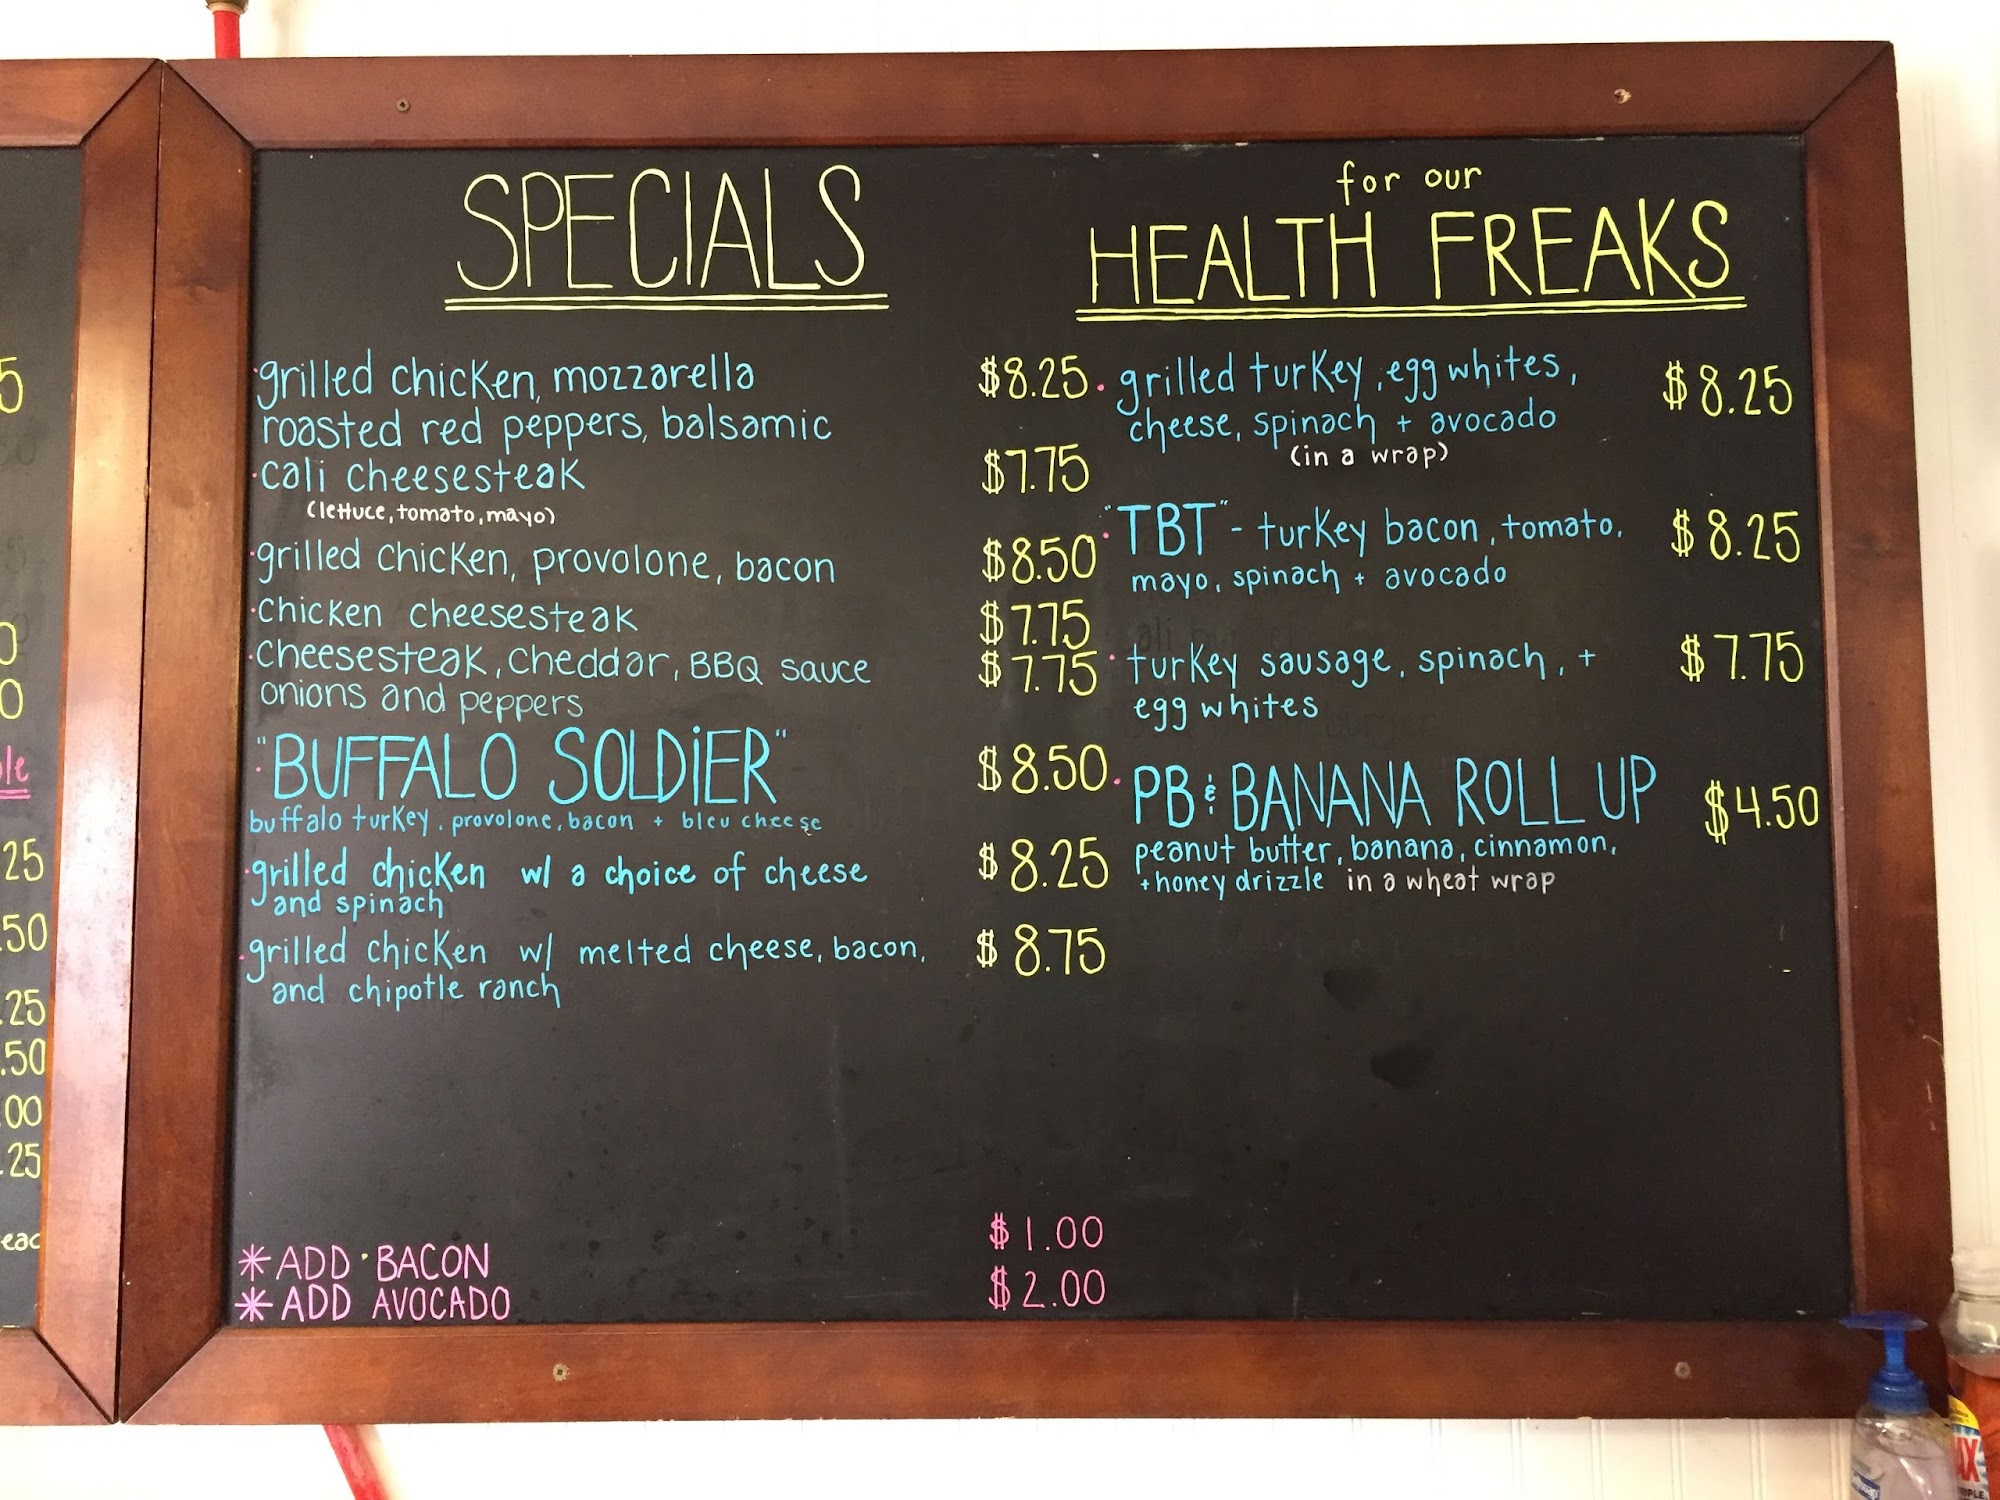 SPECIALS
grilled chicken, mozzarella $8.25
roasted red peppers, balsamic
cali cheesesteak $7.75
(lettuce, tomato, mayo)
grilled chicken, provolone, bacon $8.50
chicken cheesesteak $7.75
cheesesteak, cheddar, BBQ sauce $7.75
onions and peppers
"BUFFALO SOLDiER" $8.50
buffalo turkey, provolone, bacon + bleu cheese
grilled chicken w/ a choice of cheese $8.25
and spinach
grilled chicken w/ melted cheese, bacon, $8.75
and chipotle ranch
*ADD BACON $1.00
*ADD AVOCADO $2.00
for our
HEALTH FREAKS
grilled turkey, egg whites, $8.25
cheese, spinach + avocado
(in a wrap)
"TBT" - turkey bacon, tomato, $8.25
mayo, spinach + avocado
turkey sausage, spinach, + $7.75
egg whites
PB & BANANA ROLL UP $4.50
peanut butter, banana, cinnamon,
+honey drizzle in a wheat wrap
5
0
0
25
.50
.25
.50
.00
.25